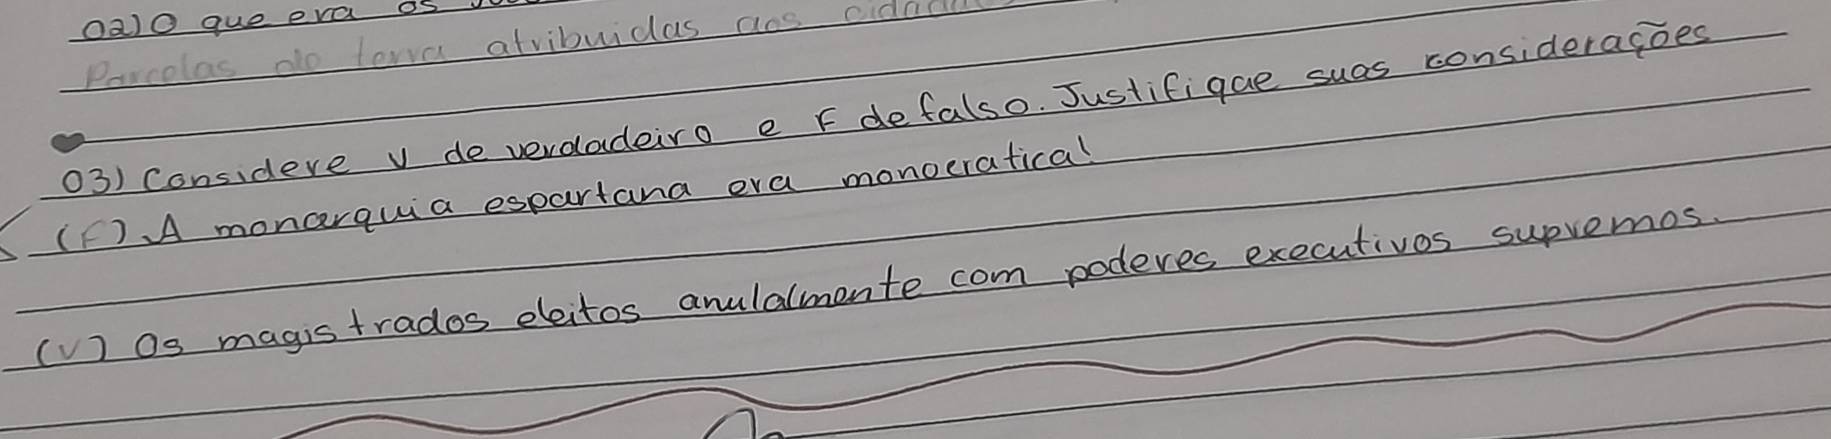 02) O que era os
Parcelas de terra atribuidas aos
03) Considere V de verdadeiro e F de falso. Justifique suas considerações
(F) A monarquia espartana era monocratica!
(V) Os magistrados eleitos anulalmente com poderes executivos supremos.